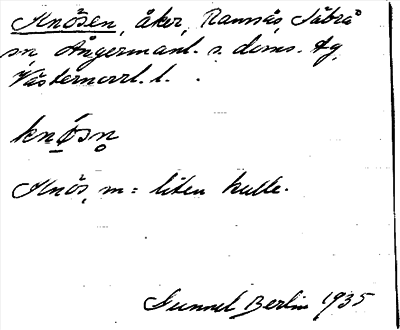 Knösen, åker, Ramsås, Säbrå
sn, Ångermanl. s. doms. Hg,
Västernorrl. l.
knøsn̥
Knös, m = liten kulle.
Gunnel Berlin 1935